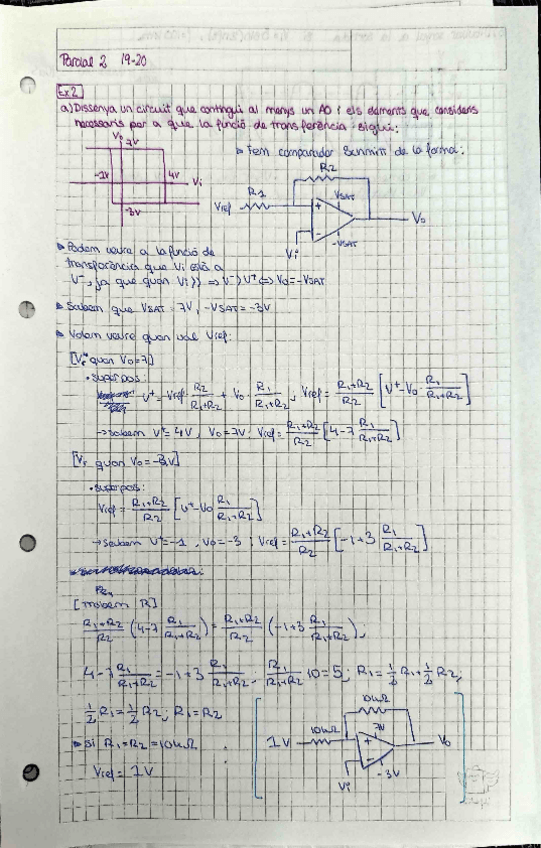 Parcial 2 19-20
Ex 2
a) Dissenya un circuit que contingui al menys un AO i els elements que consideris
necessaris per a que la funció de transferència sigui:
Vo
7V
-1V
4V
Vi
-3V
▸ Fem comparador Schmitt de la forma:
R2
R1
Vref
+
VSAT
-
-VSAT
Vi
Vo
▸ Podem veure a la funció de
transferència que Vi està a
V⁻, ja que quan Vi>> ⇒ V⁻>V⁺ ⇔ Vo=-VSAT
▸ Sabem que VSAT = 7V, -VSAT = -3V
▸ Volem veure quan val Vref:
[Vi quan Vo=7]
• superpos:
V⁺ = Vref · R2/(R1+R2) + Vo · R1/(R1+R2), Vref = (R1+R2)/R2 [V⁺-Vo · R1/(R1+R2)]
→ sabem V⁺=4V, Vo=7V: Vref = (R1+R2)/R2 [4-7 R1/(R1+R2)]
[Vi quan Vo=-3V]
• superpos:
Vref = (R1+R2)/R2 [V⁺-Vo R1/(R1+R2)]
→ Sabem V⁺=-1, Vo=-3: Vref = (R1+R2)/R2 [-1+3 R1/(R1+R2)]
[trobem R]
(R1+R2)/R2 (4-7 R1/(R1+R2)) = (R1+R2)/R2 (-1+3 R1/(R1+R2));
4-7 R1/(R1+R2) = -1+3 R1/(R1+R2); R1/(R1+R2) 10=5; R1=½R1+½R2;
½R1=½R2; R1=R2
▸ Si R1=R2=10kΩ
Vref = 1V
10kΩ
1V
10kΩ
+
7V
-
-3V
Vi
Vo